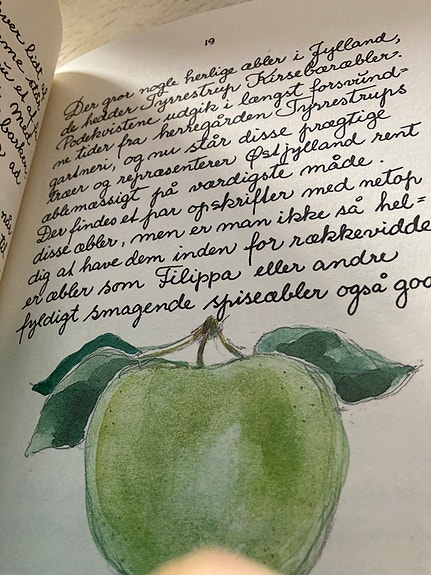 19
Der gror nogle herlige æbler i Jylland,
de hedder Tyrrestrup Kirsebæræbler.
Podekvistene udgik i længst forsvund=
ne tider fra herregården Tyrrestrups
gartneri, og nu står disse prægtige
træer og repræsenterer Østjylland rent
æblemæssigt på værdigste måde.
Der findes et par opskrifter med netop
disse æbler, men er man ikke så hel=
dig at have dem inden for rækkevidde
er æbler som Filippa eller andre
fyldigt smagende spiseæbler også